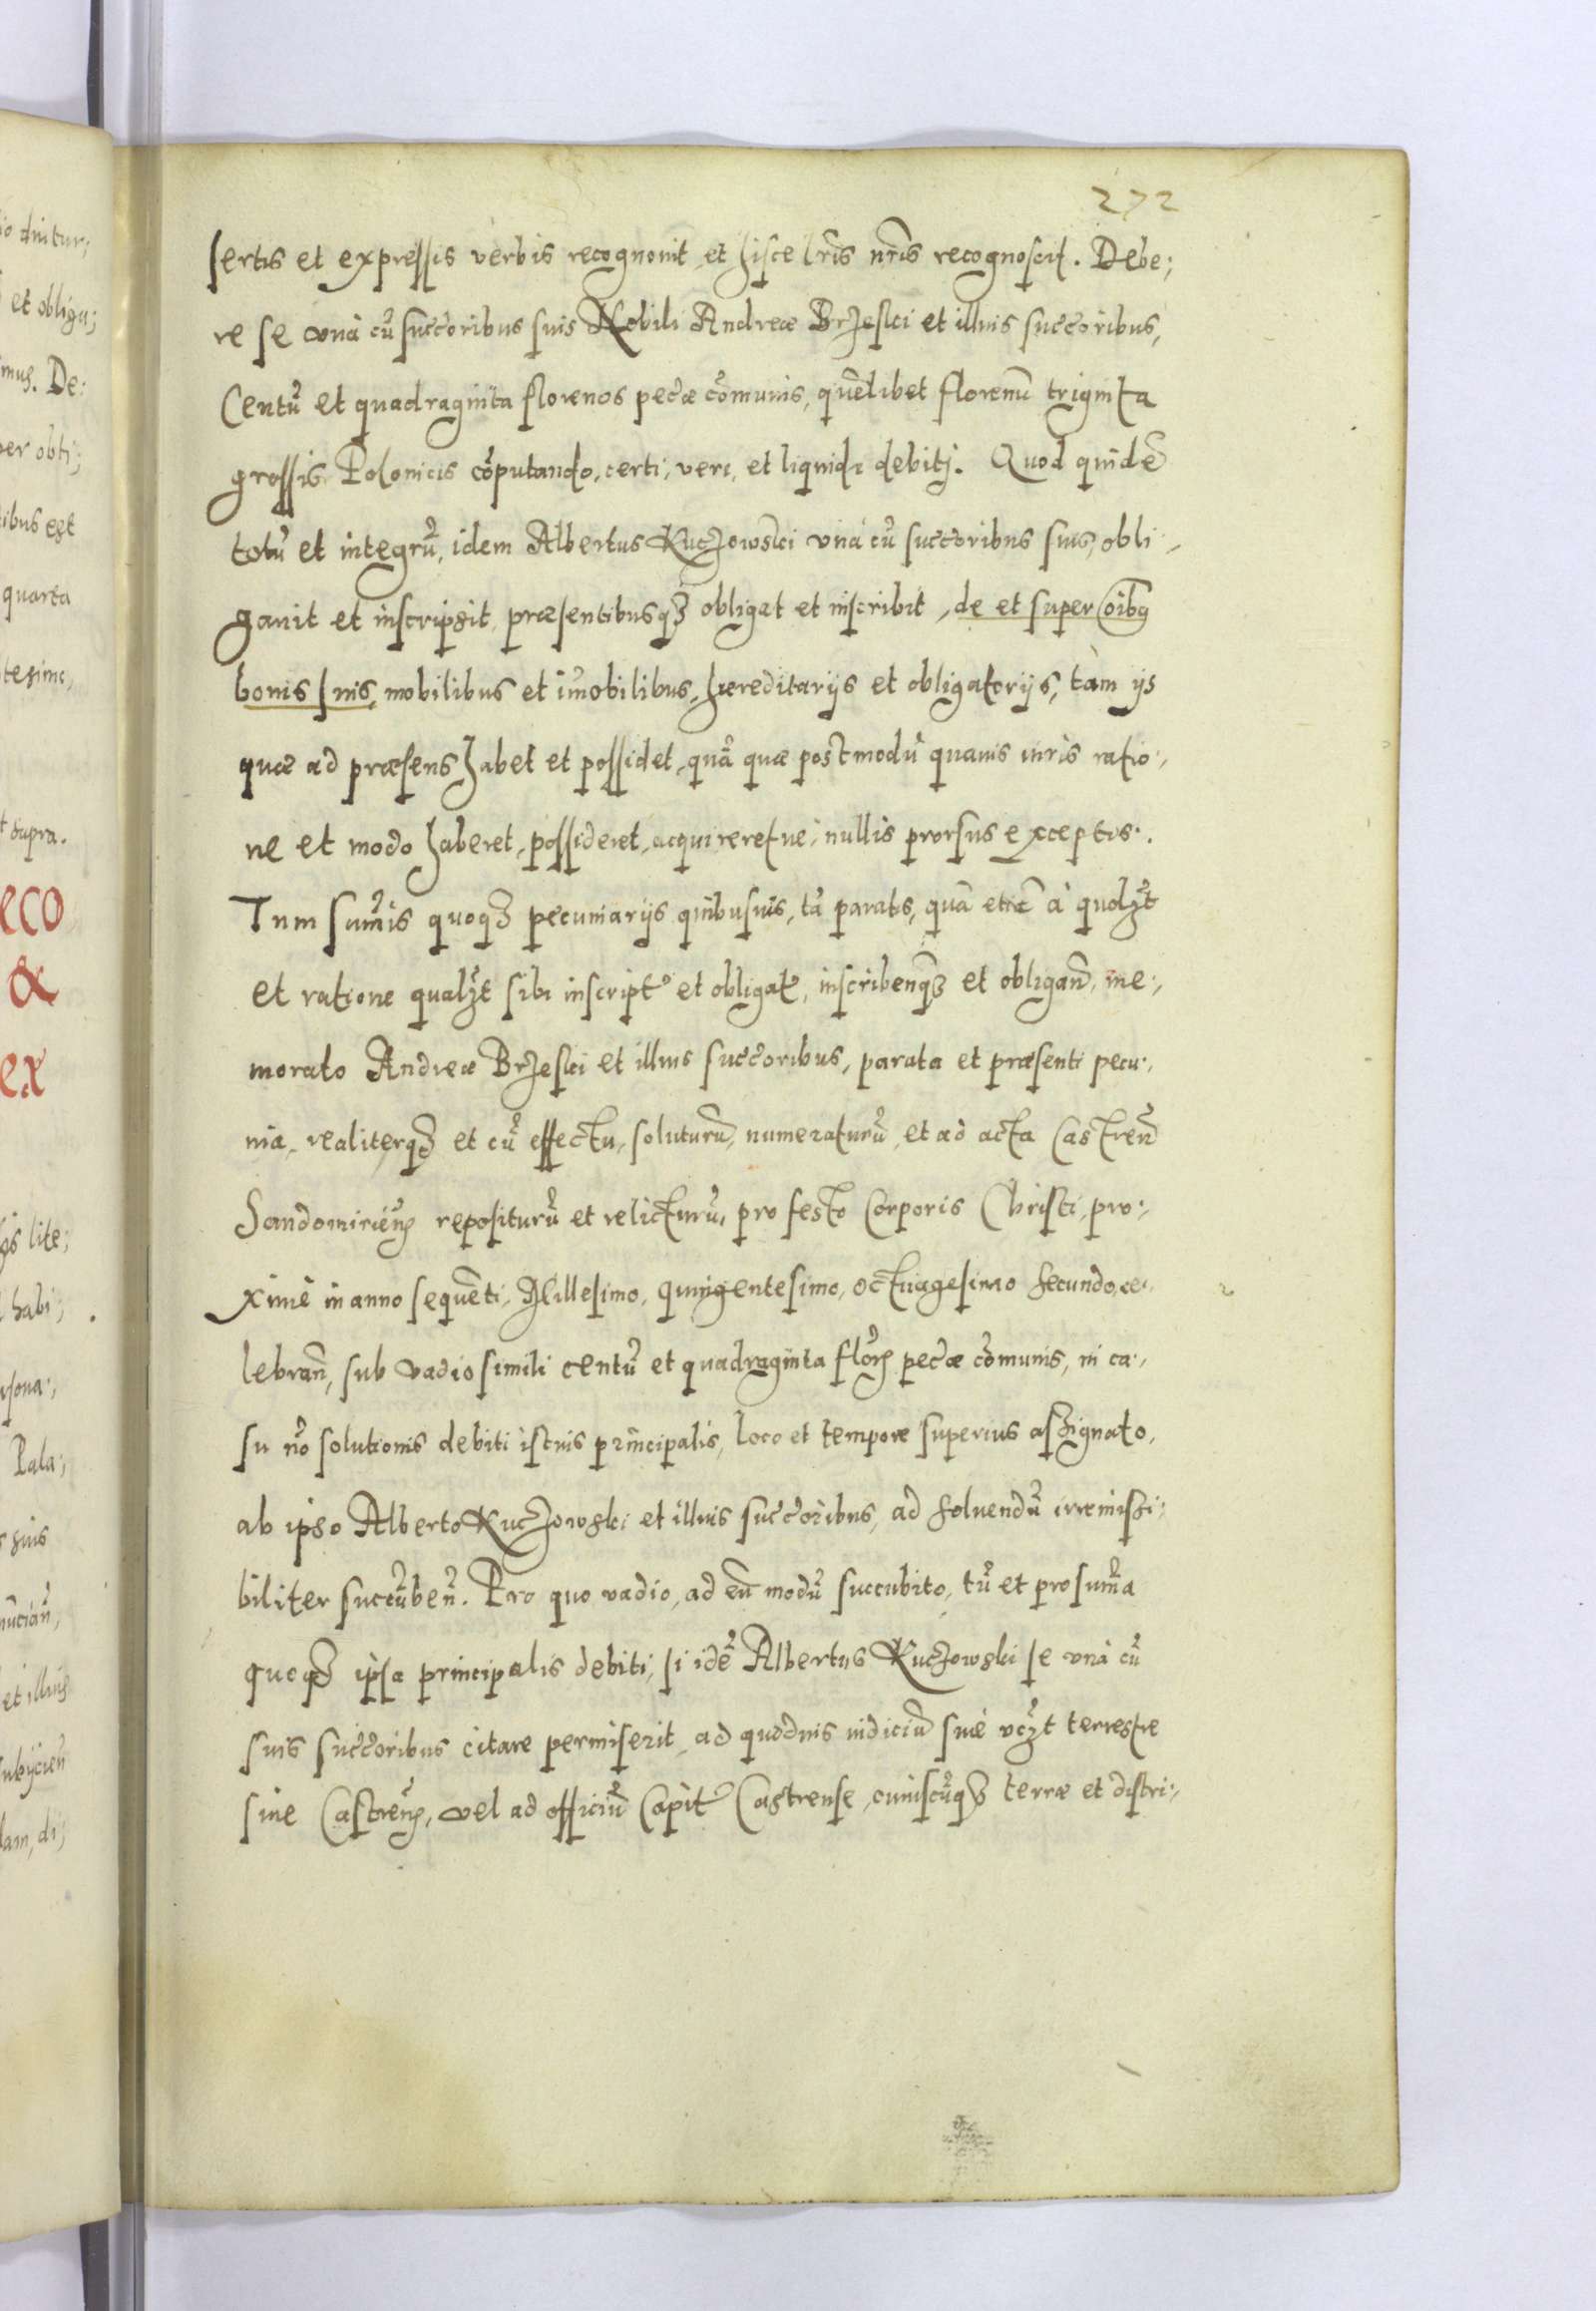 272
sertis et expressis verbis recognouit et hisce lr̃is nr̃is recognoscit. Debe;
re se vnà cũ succ̃oribus suis Nobili Andreæ Brzeski et illius succ̃oribus,
Centũ et quadraginta florenos pec̃æ cõmunis, quẽlibet florenũ triginta
grossis Polonicis cõputando, certi, veri, et liquidi debitj. Quod quidẽ
totũ et integrũ, idem Albertus Kuczowski vnà cũ succ̃oribus suis, obli-
gauit et inscripsit, præsentibusqȝ obligat et inscribit, de et super oĩbȝ
bonis suis, mobilibus et im̃obilibus, hæreditarijs et obligatorijs, tàm ijs
quæ ad præsens habet et possidet, quã quæ postmodũ quauis iuris ratio:
ne et modo haberet, possideret, acquireretue, nullis prorsus exceptis.
Tum sum̃is quoqȝ pecuniarijs quibusuis, tã paratis, quã etiã à quolȝt
et ratione qualȝt sibi inscript̃ et obligat̃, inscribenqȝ et obligañ, me:
morato Andreæ Brzeski et illius succ̃oribus, parata et præsenti pecu:
nia, realiterqȝ et cũ effectu, soluturũ, numeraturũ, et ad acta Castreñ
Sandomirieñ repositurũ et relicturũ, pro festo Corporis Christi, pro:
ximè in anno sequẽti, Millesimo, quingentesimo, octuagesimo secundo, ce:
lebrañ, sub vadio simili centũ et quadraginta flor̃ pec̃æ cõmunis, in ca:
su nõ solutionis debiti istius principalis, loco et tempore superius assignato,
ab ipso Alberto Kuczowski et illius succ̃oribus, ad soluendũ irremissi:
biliter succũbeñ. Pro quo vadio, ad eũ modũ succubito, tũ et pro sum̃a
quoqȝ ipsa principalis debiti, si idẽ Albertus Kuczowski se vnà cũ
suis succ̃oribus citare permiserit, ad quoduis iudiciũ siue vcȝt terrestre
siue Castreñ, vel ad officiũ Capit̃ Castrense, cuiuscũqȝ terræ et distri: